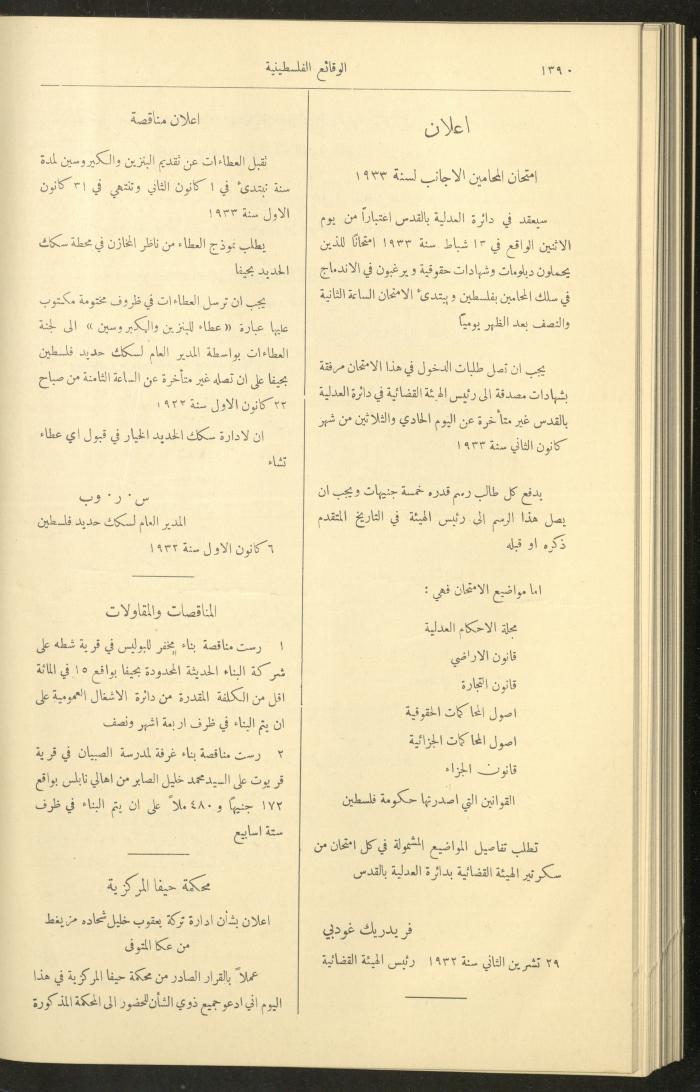 ١٣٩٠
الوقائع الفلسطينية
اعلان
امتحان المحامين الاجانب لسنة ١٩٣٣
سيعقد في دائرة العدلية بالقدس اعتباراً من يوم
الاثنين الواقع في ١٣ شباط سنة ١٩٣٣ امتحانًا للذين
يحملون دبلومات وشهادات حقوقية ويرغبون في الاندماج
في سلك المحامين بفلسطين ويبتدئ الامتحان الساعة الثانية
والنصف بعد الظهر يوميًا
يجب ان تصل طلبات الدخول في هذا الامتحان مرفقة
بشهادات مصدقة الى رئيس الهيئة القضائية في دائرة العدلية
بالقدس غير متأخرة عن اليوم الحادي والثلاثين من شهر
كانون الثاني سنة ١٩٣٣
يدفع كل طالب رسم قدره خمسة جنيهات ويجب ان
يصل هذا الرسم الى رئيس الهيئة في التاريخ المتقدم
ذكره او قبله
اما مواضيع الامتحان فهي :
مجلة الاحكام العدلية
قانون الاراضي
قانون التجارة
اصول المحاكمات الحقوقية
اصول المحاكمات الجزائية
قانون الجزاء
القوانين التي اصدرتها حكومة فلسطين
تطلب تفاصيل المواضيع المشمولة في كل امتحان من
سكرتير الهيئة القضائية بدائرة العدلية بالقدس
فريدريك غودبي
٢٩ تشرين الثاني سنة ١٩٣٢ رئيس الهيئة القضائية
اعلان مناقصة
تقبل العطاءات عن تقديم البنزين والكيروسين لمدة
سنة تبتدئ في ١ كانون الثاني وتنتهي في ٣١ كانون
الاول سنة ١٩٣٣
يطلب نموذج العطاء من ناظر المخازن في محطة سكك
الحديد بحيفا
يجب ان ترسل العطاءات في ظروف مختومة مكتوب
عليها عبارة « عطاء للبنزين والكيروسين » الى لجنة
العطاءات بواسطة المدير العام لسكك حديد فلسطين
بحيفا على ان تصله غير متأخرة عن الساعة الثامنة من صباح
٢٢ كانون الاول سنة ١٩٢٢
ان لادارة سكك الحديد الخيار في قبول اي عطاء
تشاء
س ٠ ر ٠ وب
المدير العام لسكك حديد فلسطين
٦ كانون الاول سنة ١٩٣٢
المناقصات والمقاولات
١ رست مناقصة بناء مخفر للبوليس في قرية شطه على
شركة البناء الحديثة المحدودة بحيفا بواقع ١٥ في المائة
اقل من الكلفة المقدرة من دائرة الاشغال العمومية على
ان يتم البناء في ظرف اربعة اشهر ونصف
٢ رست مناقصة بناء غرفة لمدرسة الصبيان في قرية
قريوت على السيد محمد خليل الصابر من اهالي نابلس بواقع
١٧٢ جنيهًا و ٤٨٠ ملاً على ان يتم البناء في ظرف
ستة اسابيع
محكمة حيفا المركزية
اعلان بشأن ادارة تركة يعقوب خليل شحاده مزيغط
من عكا المتوفى
عملاً بالقرار الصادر من محكمة حيفا المركزية في هذا
اليوم اني ادعو جميع ذوي الشأن للحضور الى المحكمة المذكورة